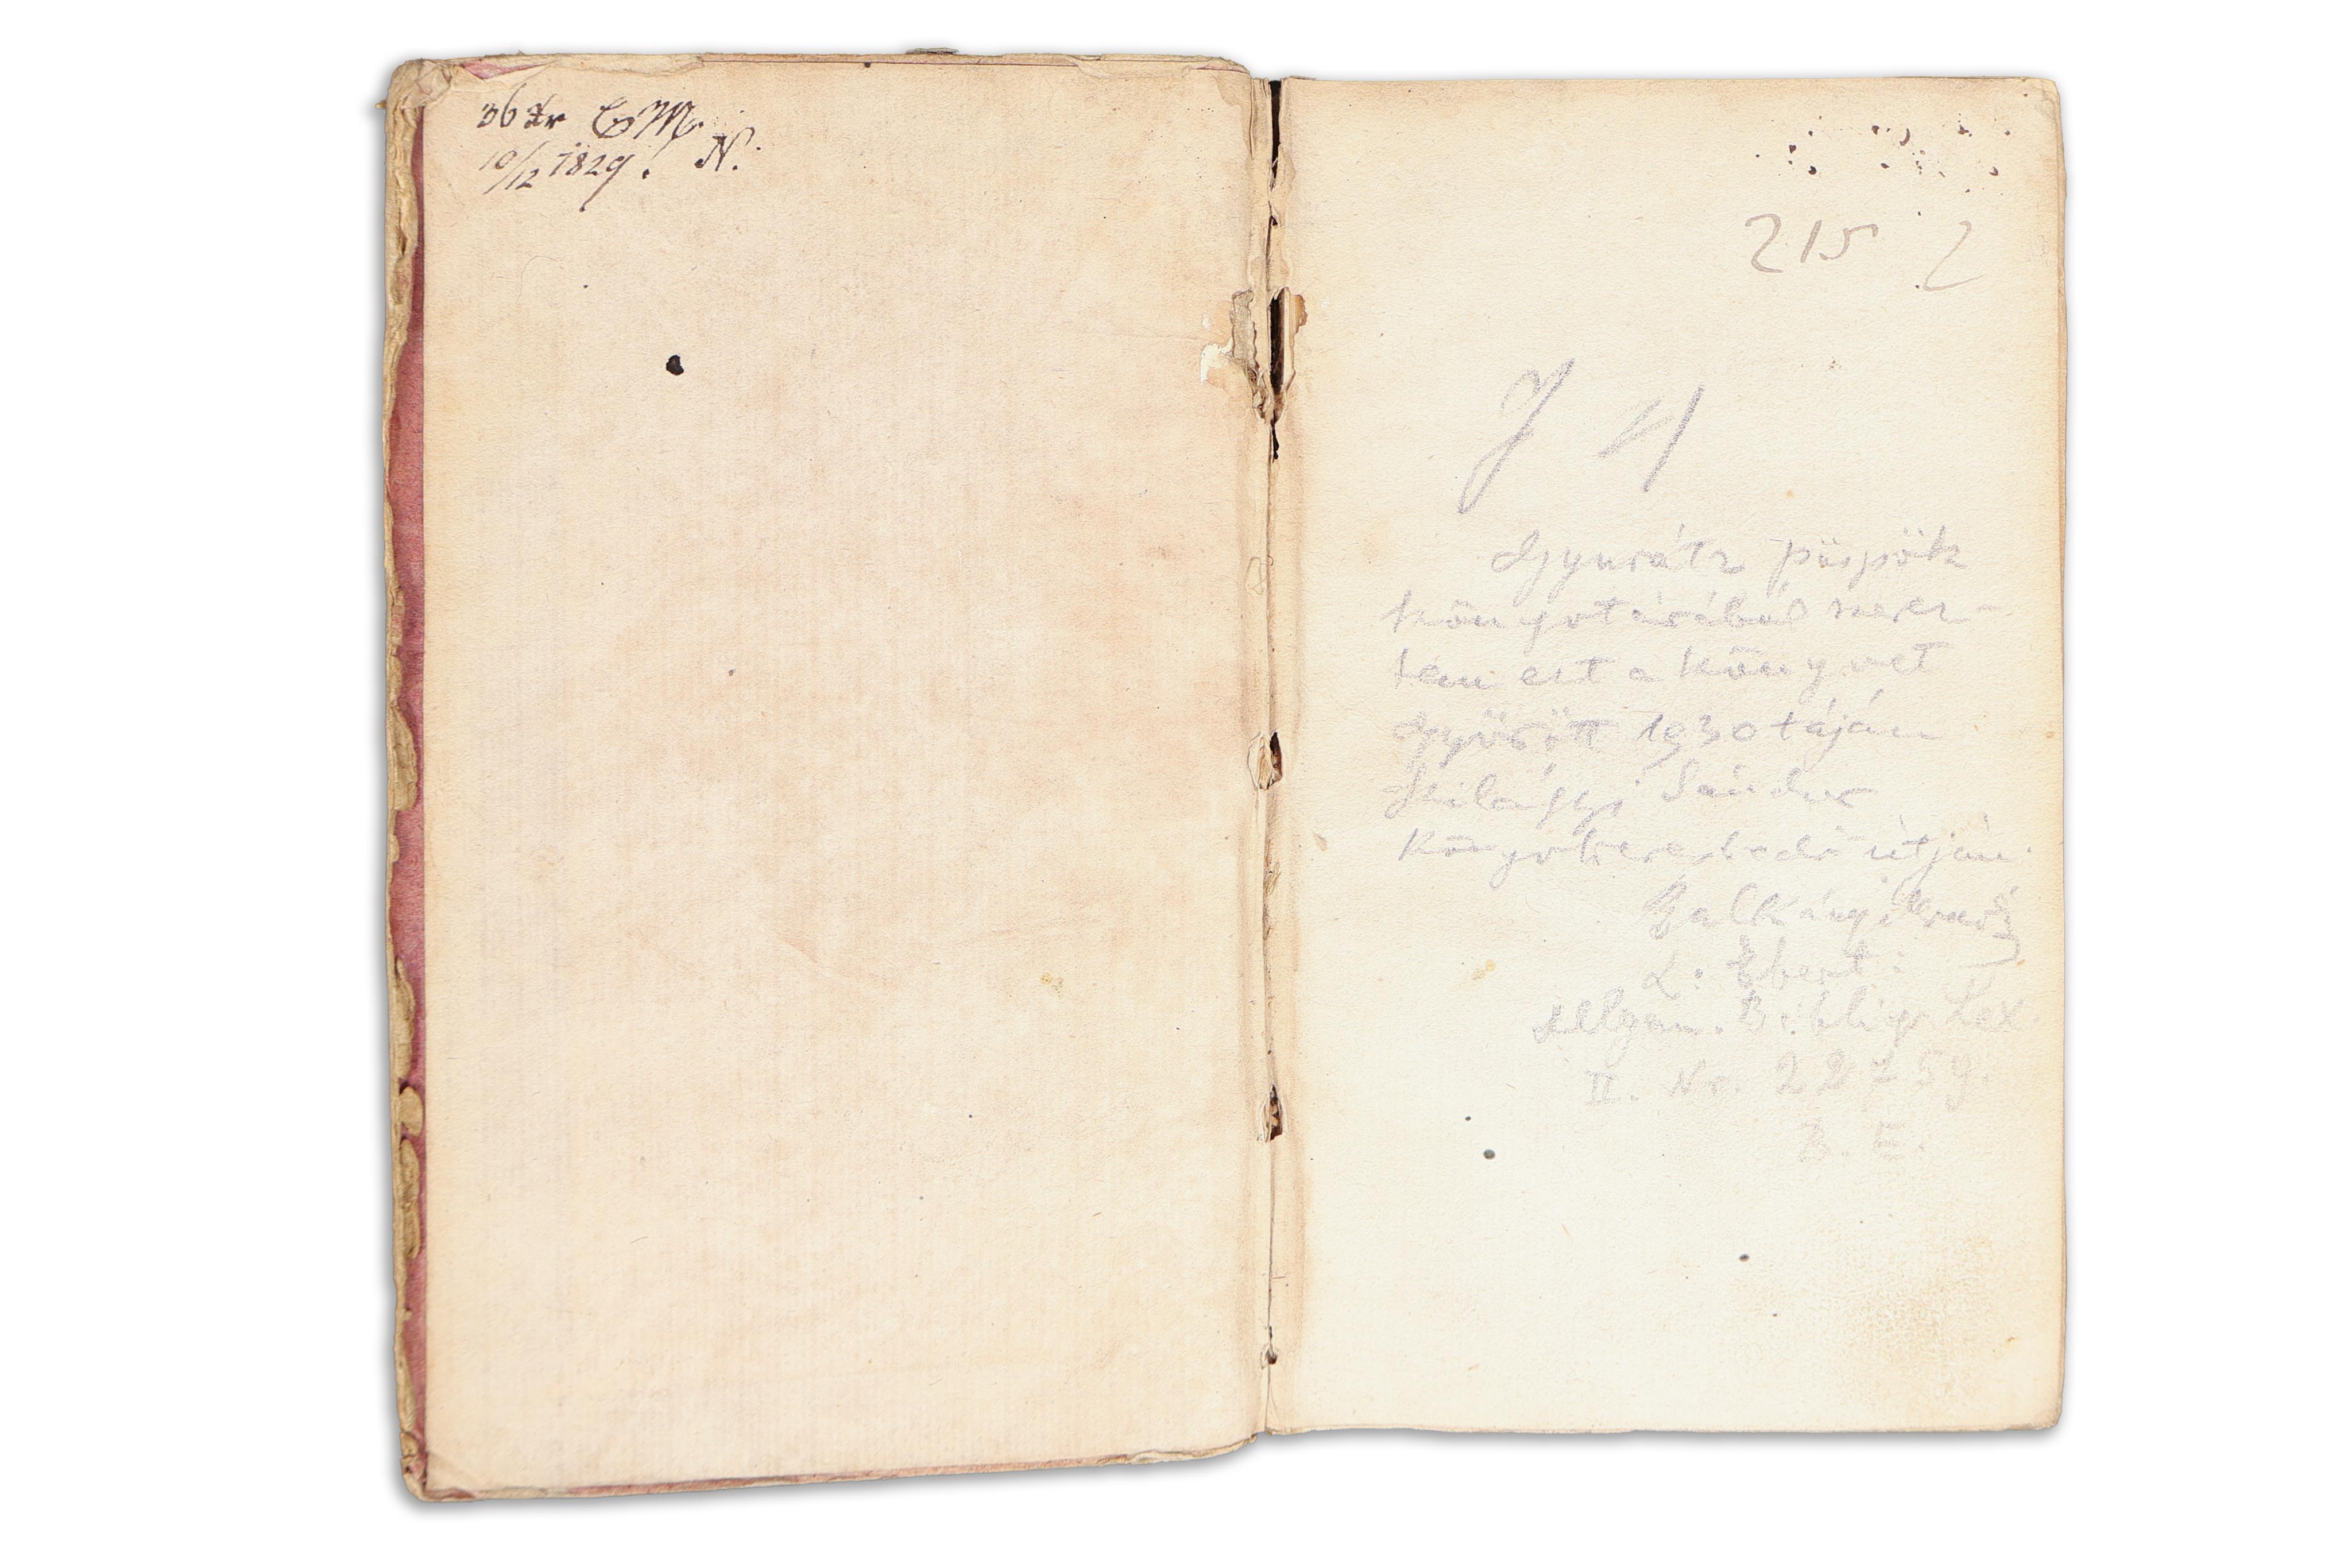 36 xr CM.
10/12 1829. N.
215 2
Gyurátz püspök
könyvtárából szerez-
tem ezt a könyvet
Győrött 1930 táján
Szilágyi Sándor
könyvkereskedő útján.
Balkányi
L: Ebert:
Allgem. Bibliogr. Lex.
II. Nr. 22759.
B. E.